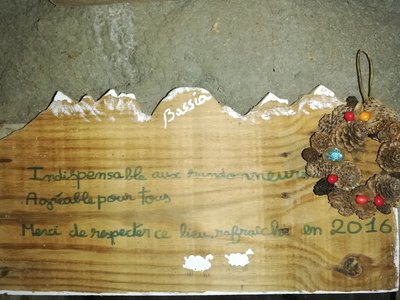 Bassia
Indispensable aux randonneurs
Agréable pour tous
Merci de respecter ce lieu, rafraichi en 2016